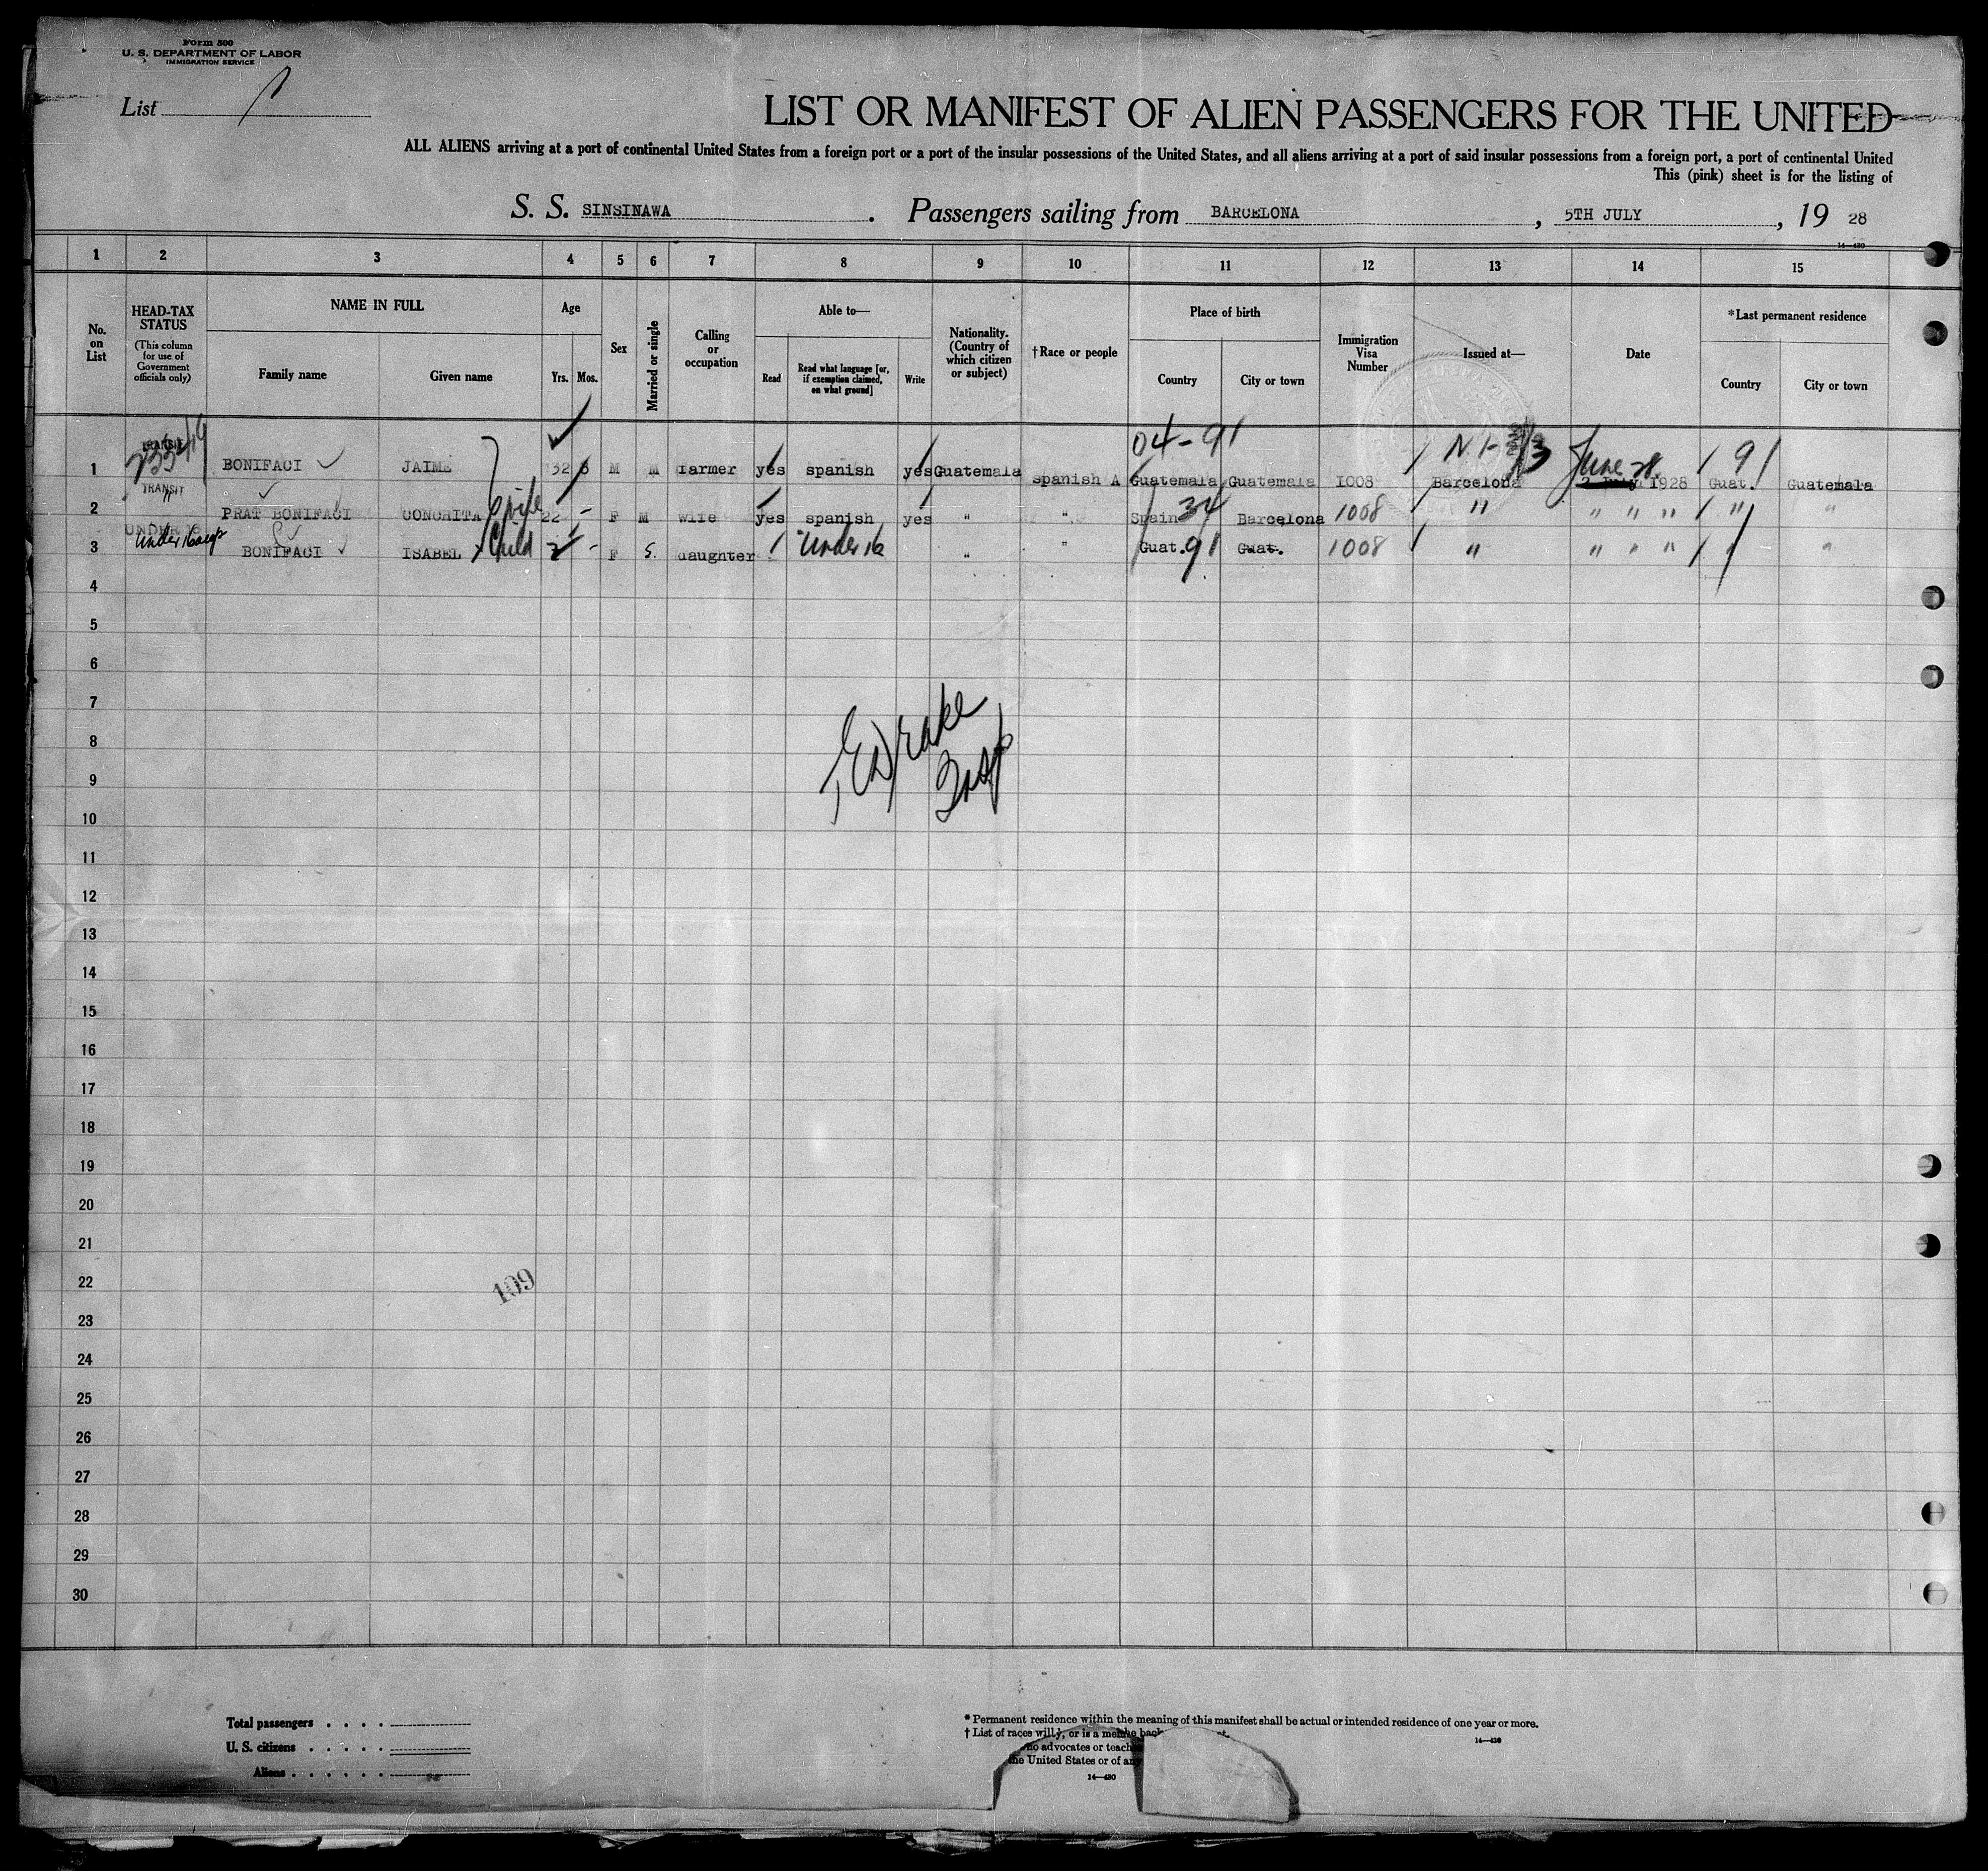 Form 500
U. S. DEPARTMENT OF LABOR
IMMIGRATION SERVICE
List
LIST OR MANIFEST OF ALIEN PASSENGERS FOR THE UNITED
ALL ALIENS arriving at a port of continental United States from a foreign port or a port of the insular possessions of the United States, and all aliens arriving at a port of said insular possessions from a foreign port, a port of continental United
This (pink) sheet is for the listing of
S. S. SINSINAWA . Passengers sailing from BARCELONA , 5TH JULY , 19 28
14—430
1 2 3 4 5 6 7 8 9 10 11 12 13 14 15
No. on List
HEAD-TAX STATUS (This column for use of Government officials only)
NAME IN FULL
Family name Given name
Age
Yrs. Mos.
Sex
Married or single
Calling or occupation
Able to—
Read Read what language [or, if exemption claimed, on what ground] Write
Nationality. (Country of which citizen or subject)
†Race or people
Place of birth
Country City or town
Immigration Visa Number
Issued at—
Date
*Last permanent residence
Country City or town
04-91
1 TRANSIT BONIFACI JAIME 32 6 M M farmer yes spanish yes Guatemala spanish A Guatemala Guatemala 1008 Barcelona June 1928 Guat. 91 Guatemala
2 TRANSIT PRAT BONIFACI CONCHITA wife 22 - F M wife yes spanish yes " " Spain 34 Barcelona 1008 " " " " " "
3 UNDER 16 BONIFACI ISABEL Child 2 - F S. daughter Under 16 " " Guat. 91 Guat. 1008 " " " " " "
4
5
6
7
8
9
10
11
12
13
14
15
16
17
18
19
20
21
22
23
24
25
26
27
28
29
30
Drake
Insp
109
Total passengers . . . .
U. S. citizens . . . . .
Aliens . . . . . .
* Permanent residence within the meaning of this manifest shall be actual or intended residence of one year or more.
† List of races will
14—430
who advocates or teach
the United States or of any
14—430